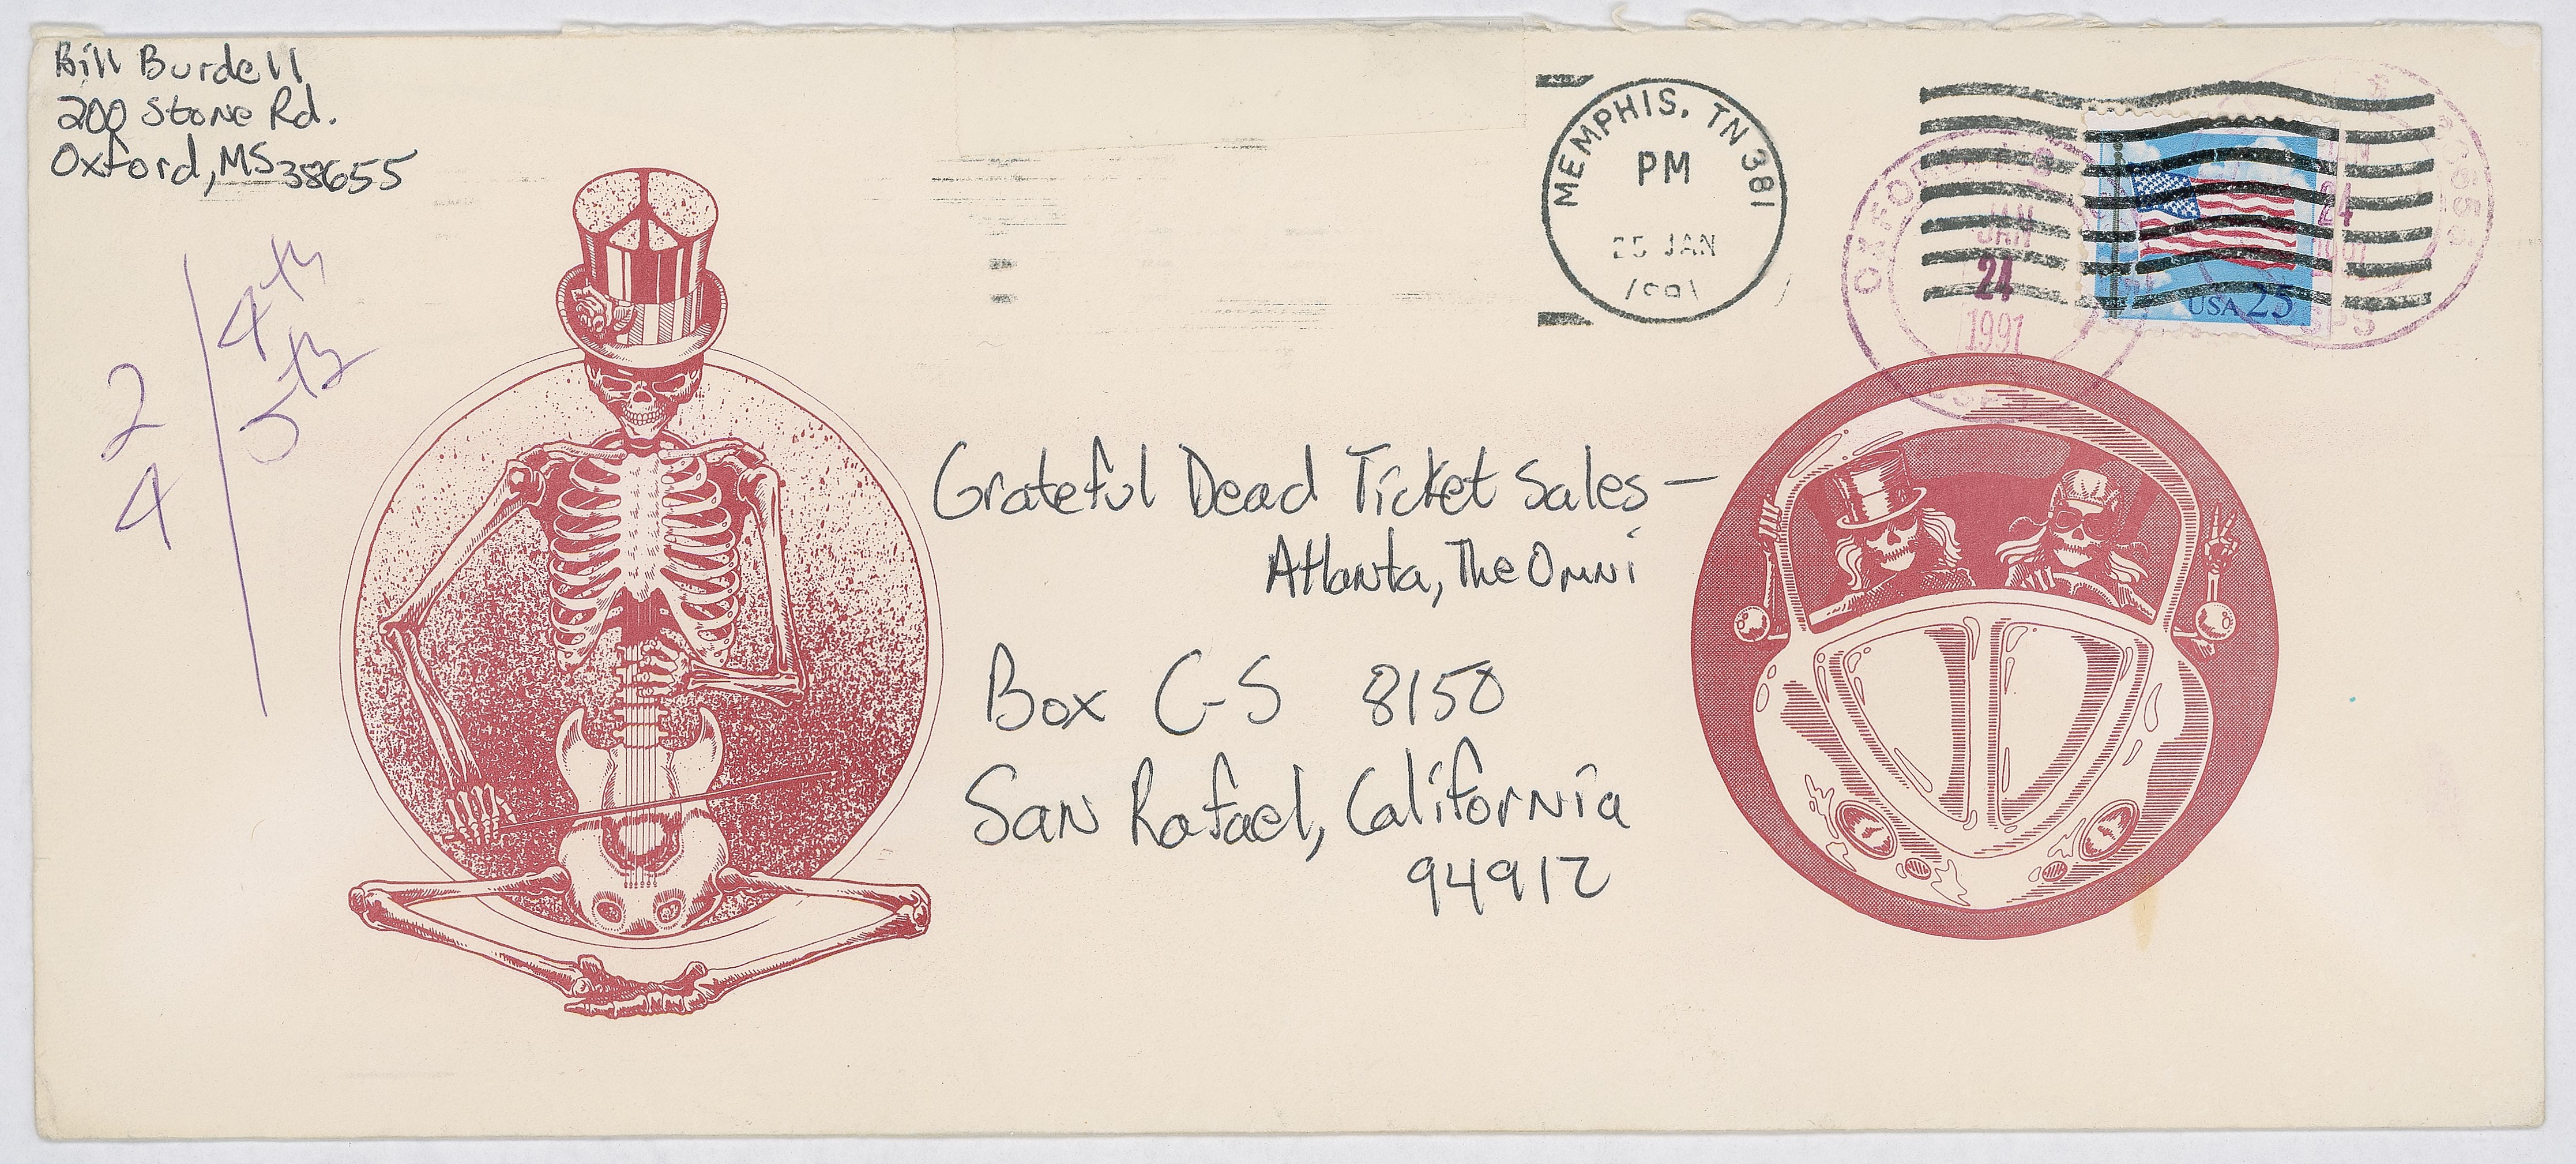 Bill Burdell
200 Stone Rd.
Oxford, MS 38655
MEMPHIS, TN 381
PM
25 JAN
1991
JAN
24
1991
24
1991
USPS
38655
USA 25
2
4
4th
5th
Grateful Dead Ticket Sales -
Atlanta, The Omni
Box C-S 8150
San Rafael, California
94912